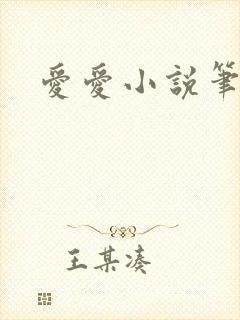 愛愛小說筆
王某湊